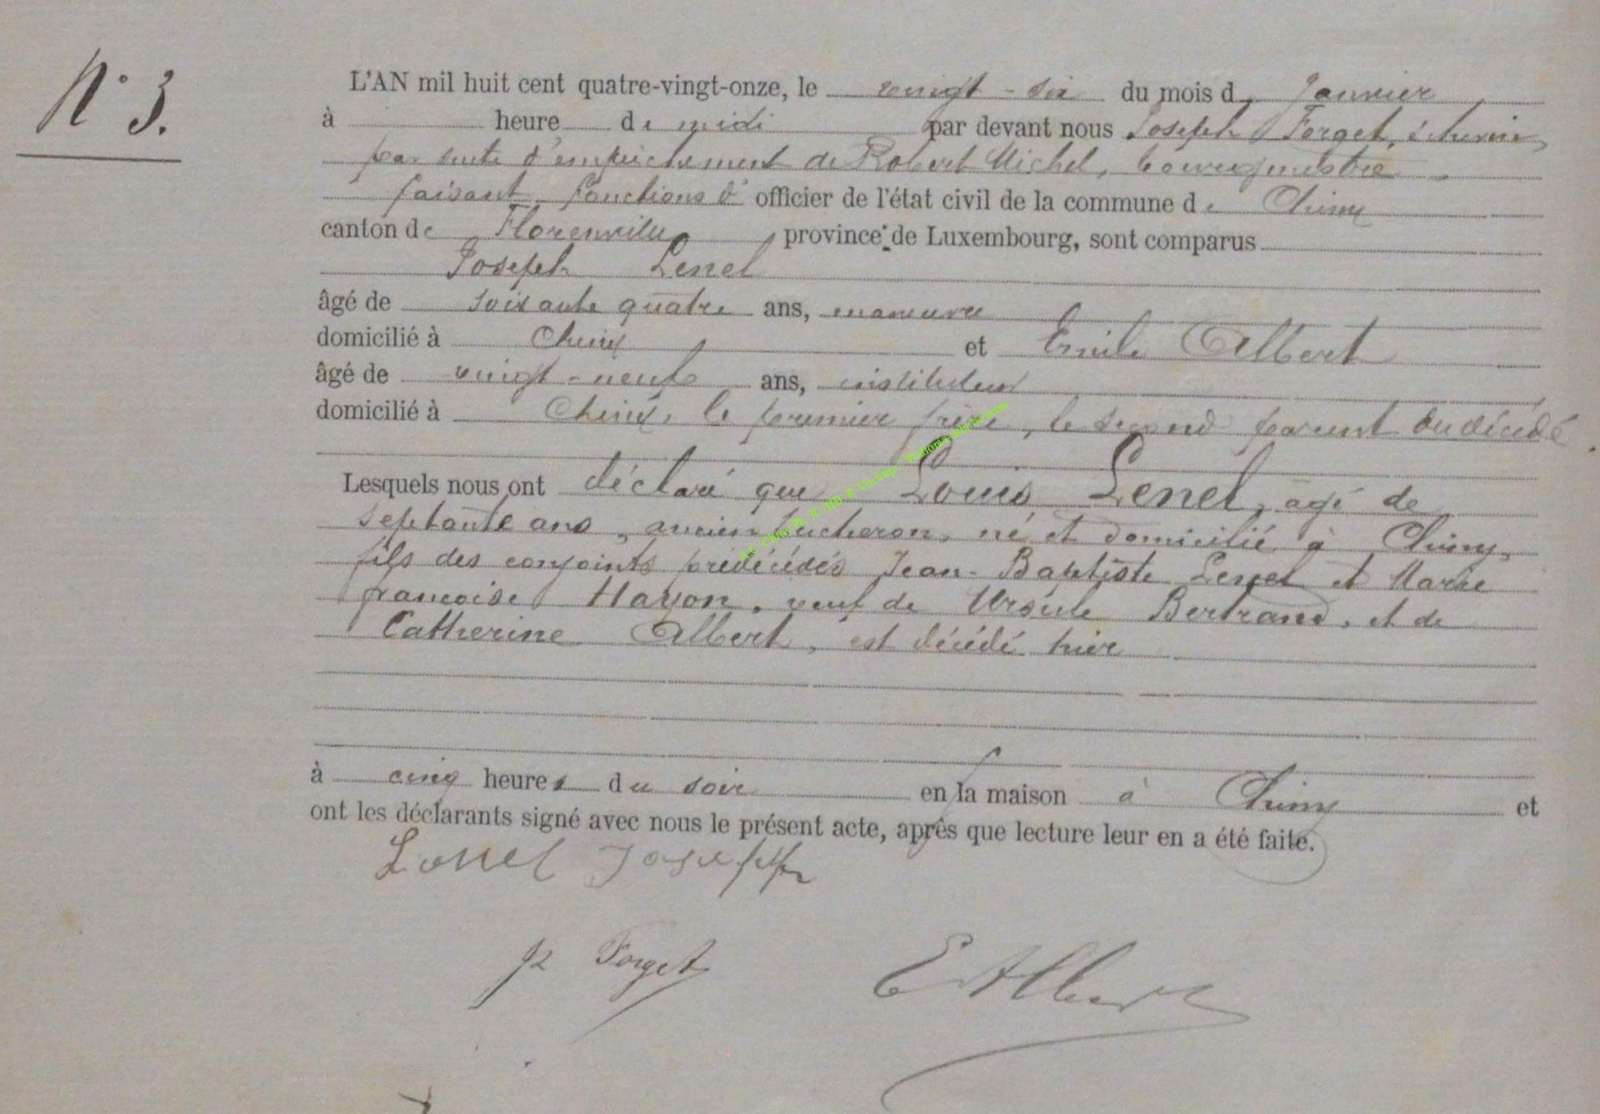 N° 3.
L'AN mil huit cent quatre-vingt-onze, le vingt-six du mois d Janvier
à heure de midi par devant nous Joseph Forget, échevin,
par suite d'empêchement de Robert Michel, bourgmestre
faisant fonctions d' officier de l'état civil de la commune de Chiny
canton de Florenville province de Luxembourg, sont comparus
Joseph Lenel
âgé de soixante quatre ans, manœuvre
domicilié à Chiny et Emile Albert
âgé de vingt-neuf ans, instituteur
domicilié à Chiny, le premier frère, le second parent du décédé.
Lesquels nous ont déclaré que Louis Lenel, âgé de
septante ans, ancien bucheron, né et domicilié à Chiny,
fils des conjoints prédécédés Jean-Baptiste Lenel et Marie
françoise Hayon, veuf de Ursule Bertrand, et de
Catherine Albert, est décédé hier
à cinq heures du soir en la maison à Chiny et
ont les déclarants signé avec nous le présent acte, après que lecture leur en a été faite.
Lenel Joseph
Forget E Albert